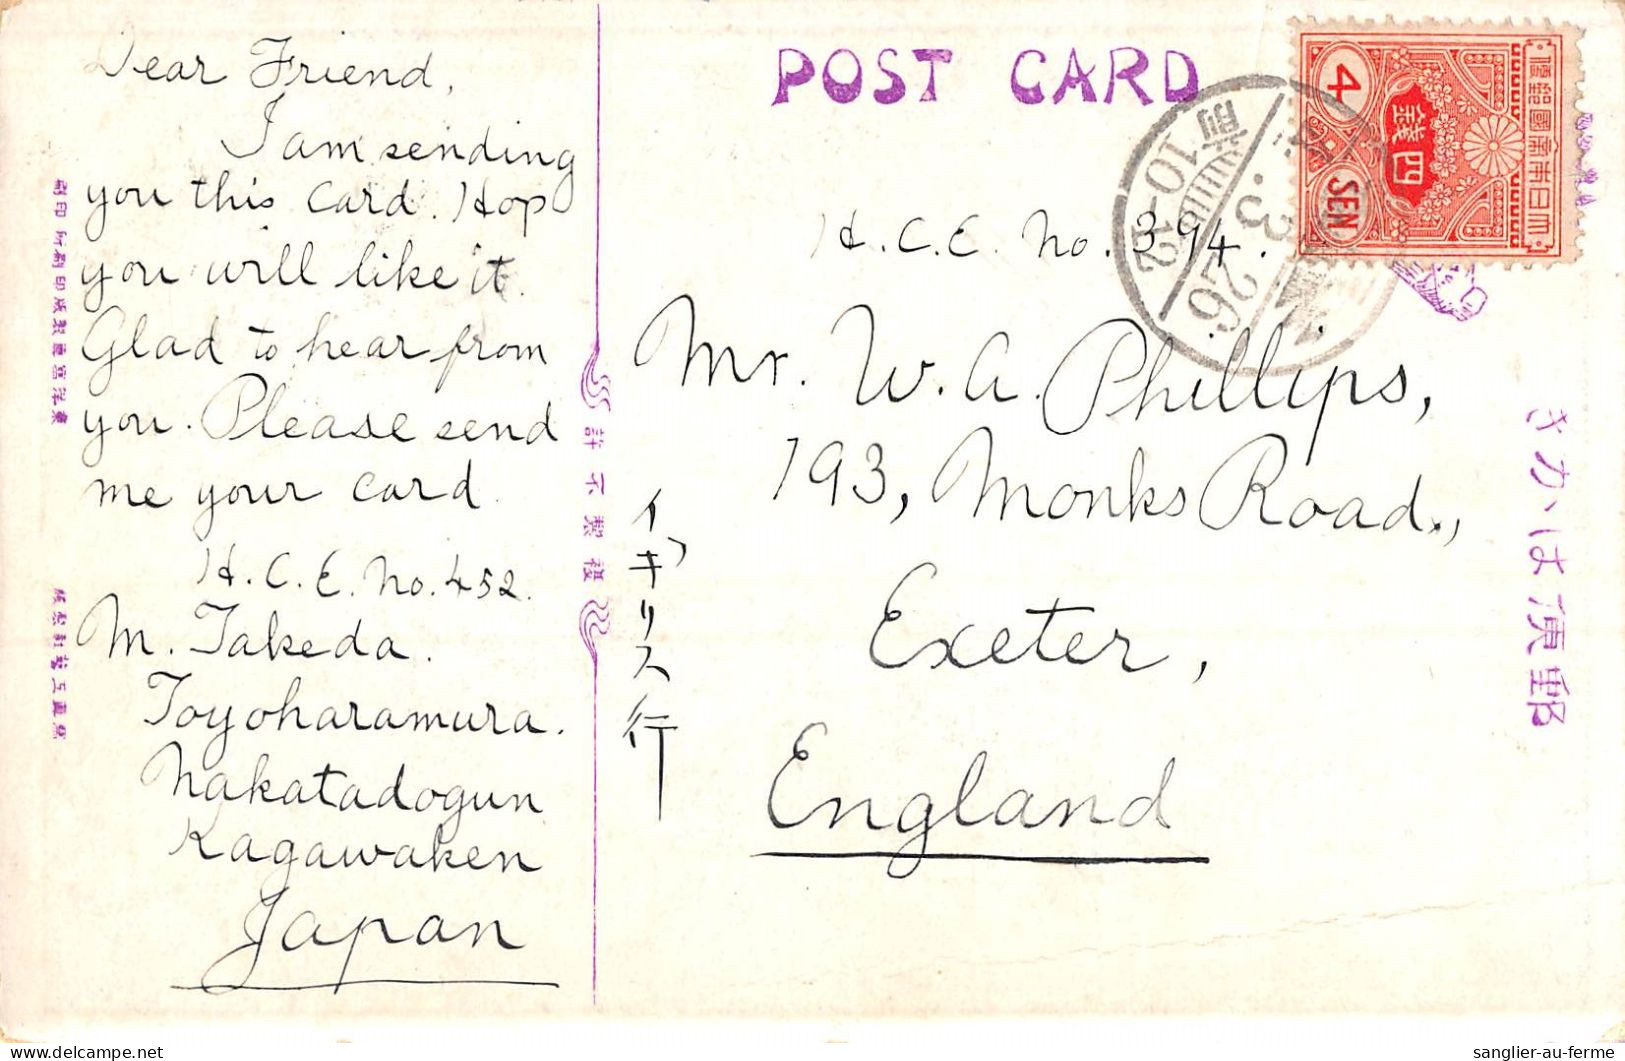 Dear Friend,
I am sending
you this card. Hop
you will like it.
Glad to hear from
you. Please send
me your card.
H.C.E. No. 452.
M. Takeda.
Toyoharamura.
Nakatadogun
Kagawaken
Japan
POST CARD
H.C.E. No. 394.
Mr. W. A. Phillips,
193, Monks Road.,
Exeter,
England
イギリス行
許不製複
郵便はかき
大日本帝國郵便
四銭
4
SEN
3.26
前10-12
sanglier-au-ferme
delcampe.net